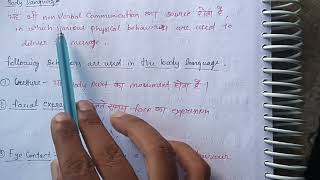 Body Language
यह भी non Verbal Communication का source होता है,
in which various physical behaviours are used to
deliver the message.
Following Behaviors are used in the body language.
① Gesture - यह Body Part का movement होता है।
② Facial face का expression
③ Eye Contact -